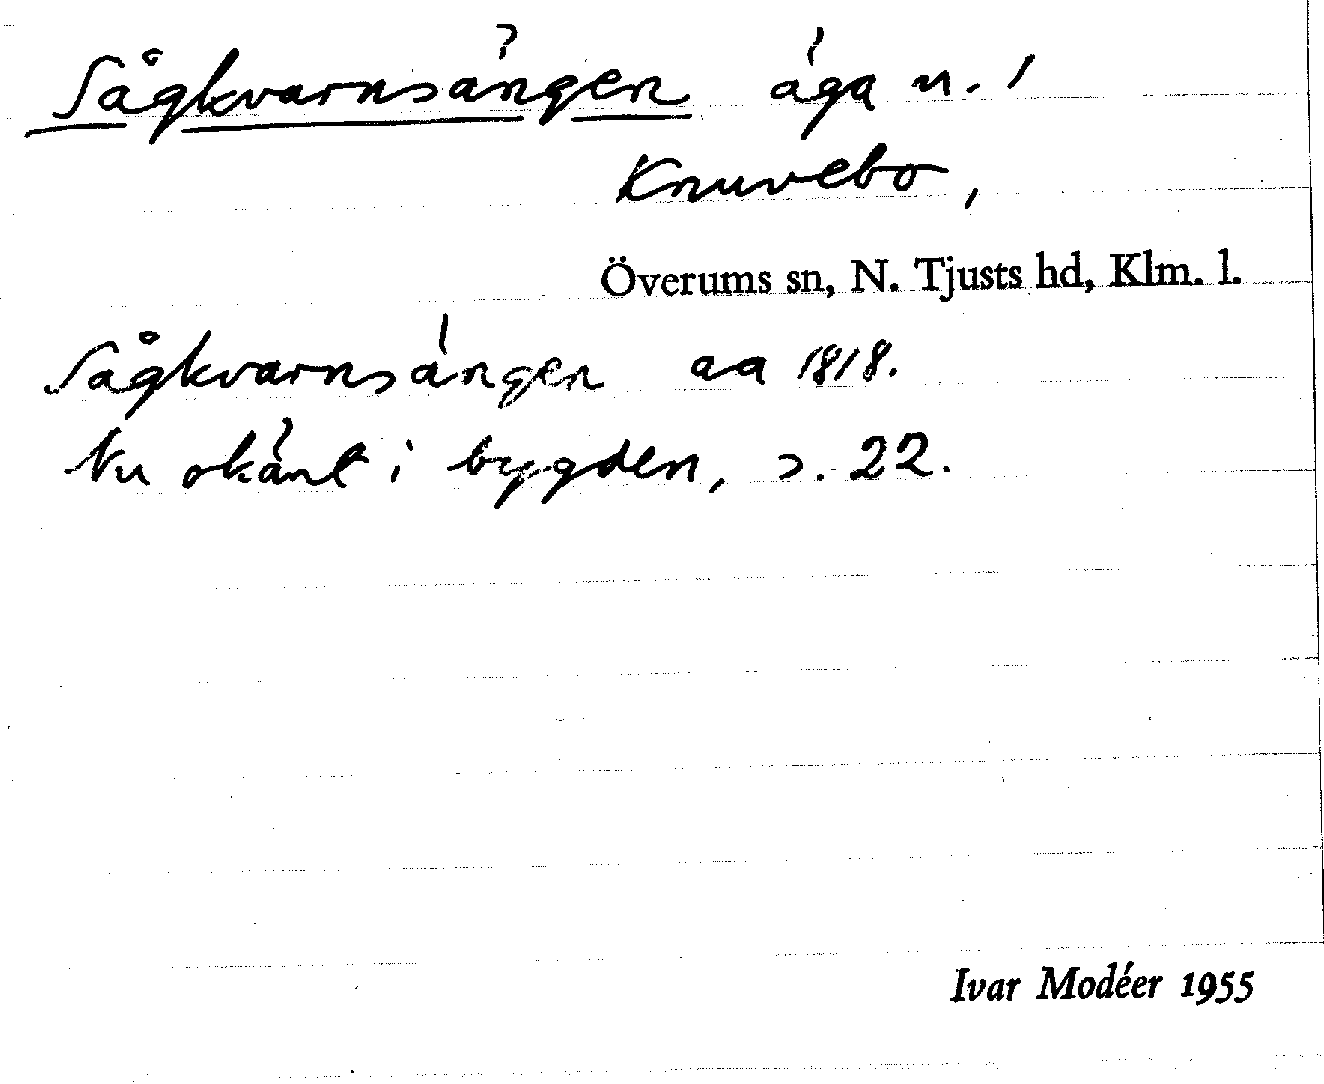 Sågkvarnsängen äga n. 1
Knuvebo,
Överums sn, N. Tjusts hd, Klm. l.
Sågkvarnsängen aa 1818.
Nu okänt i bygden, s. 22.
Ivar Modéer 1955